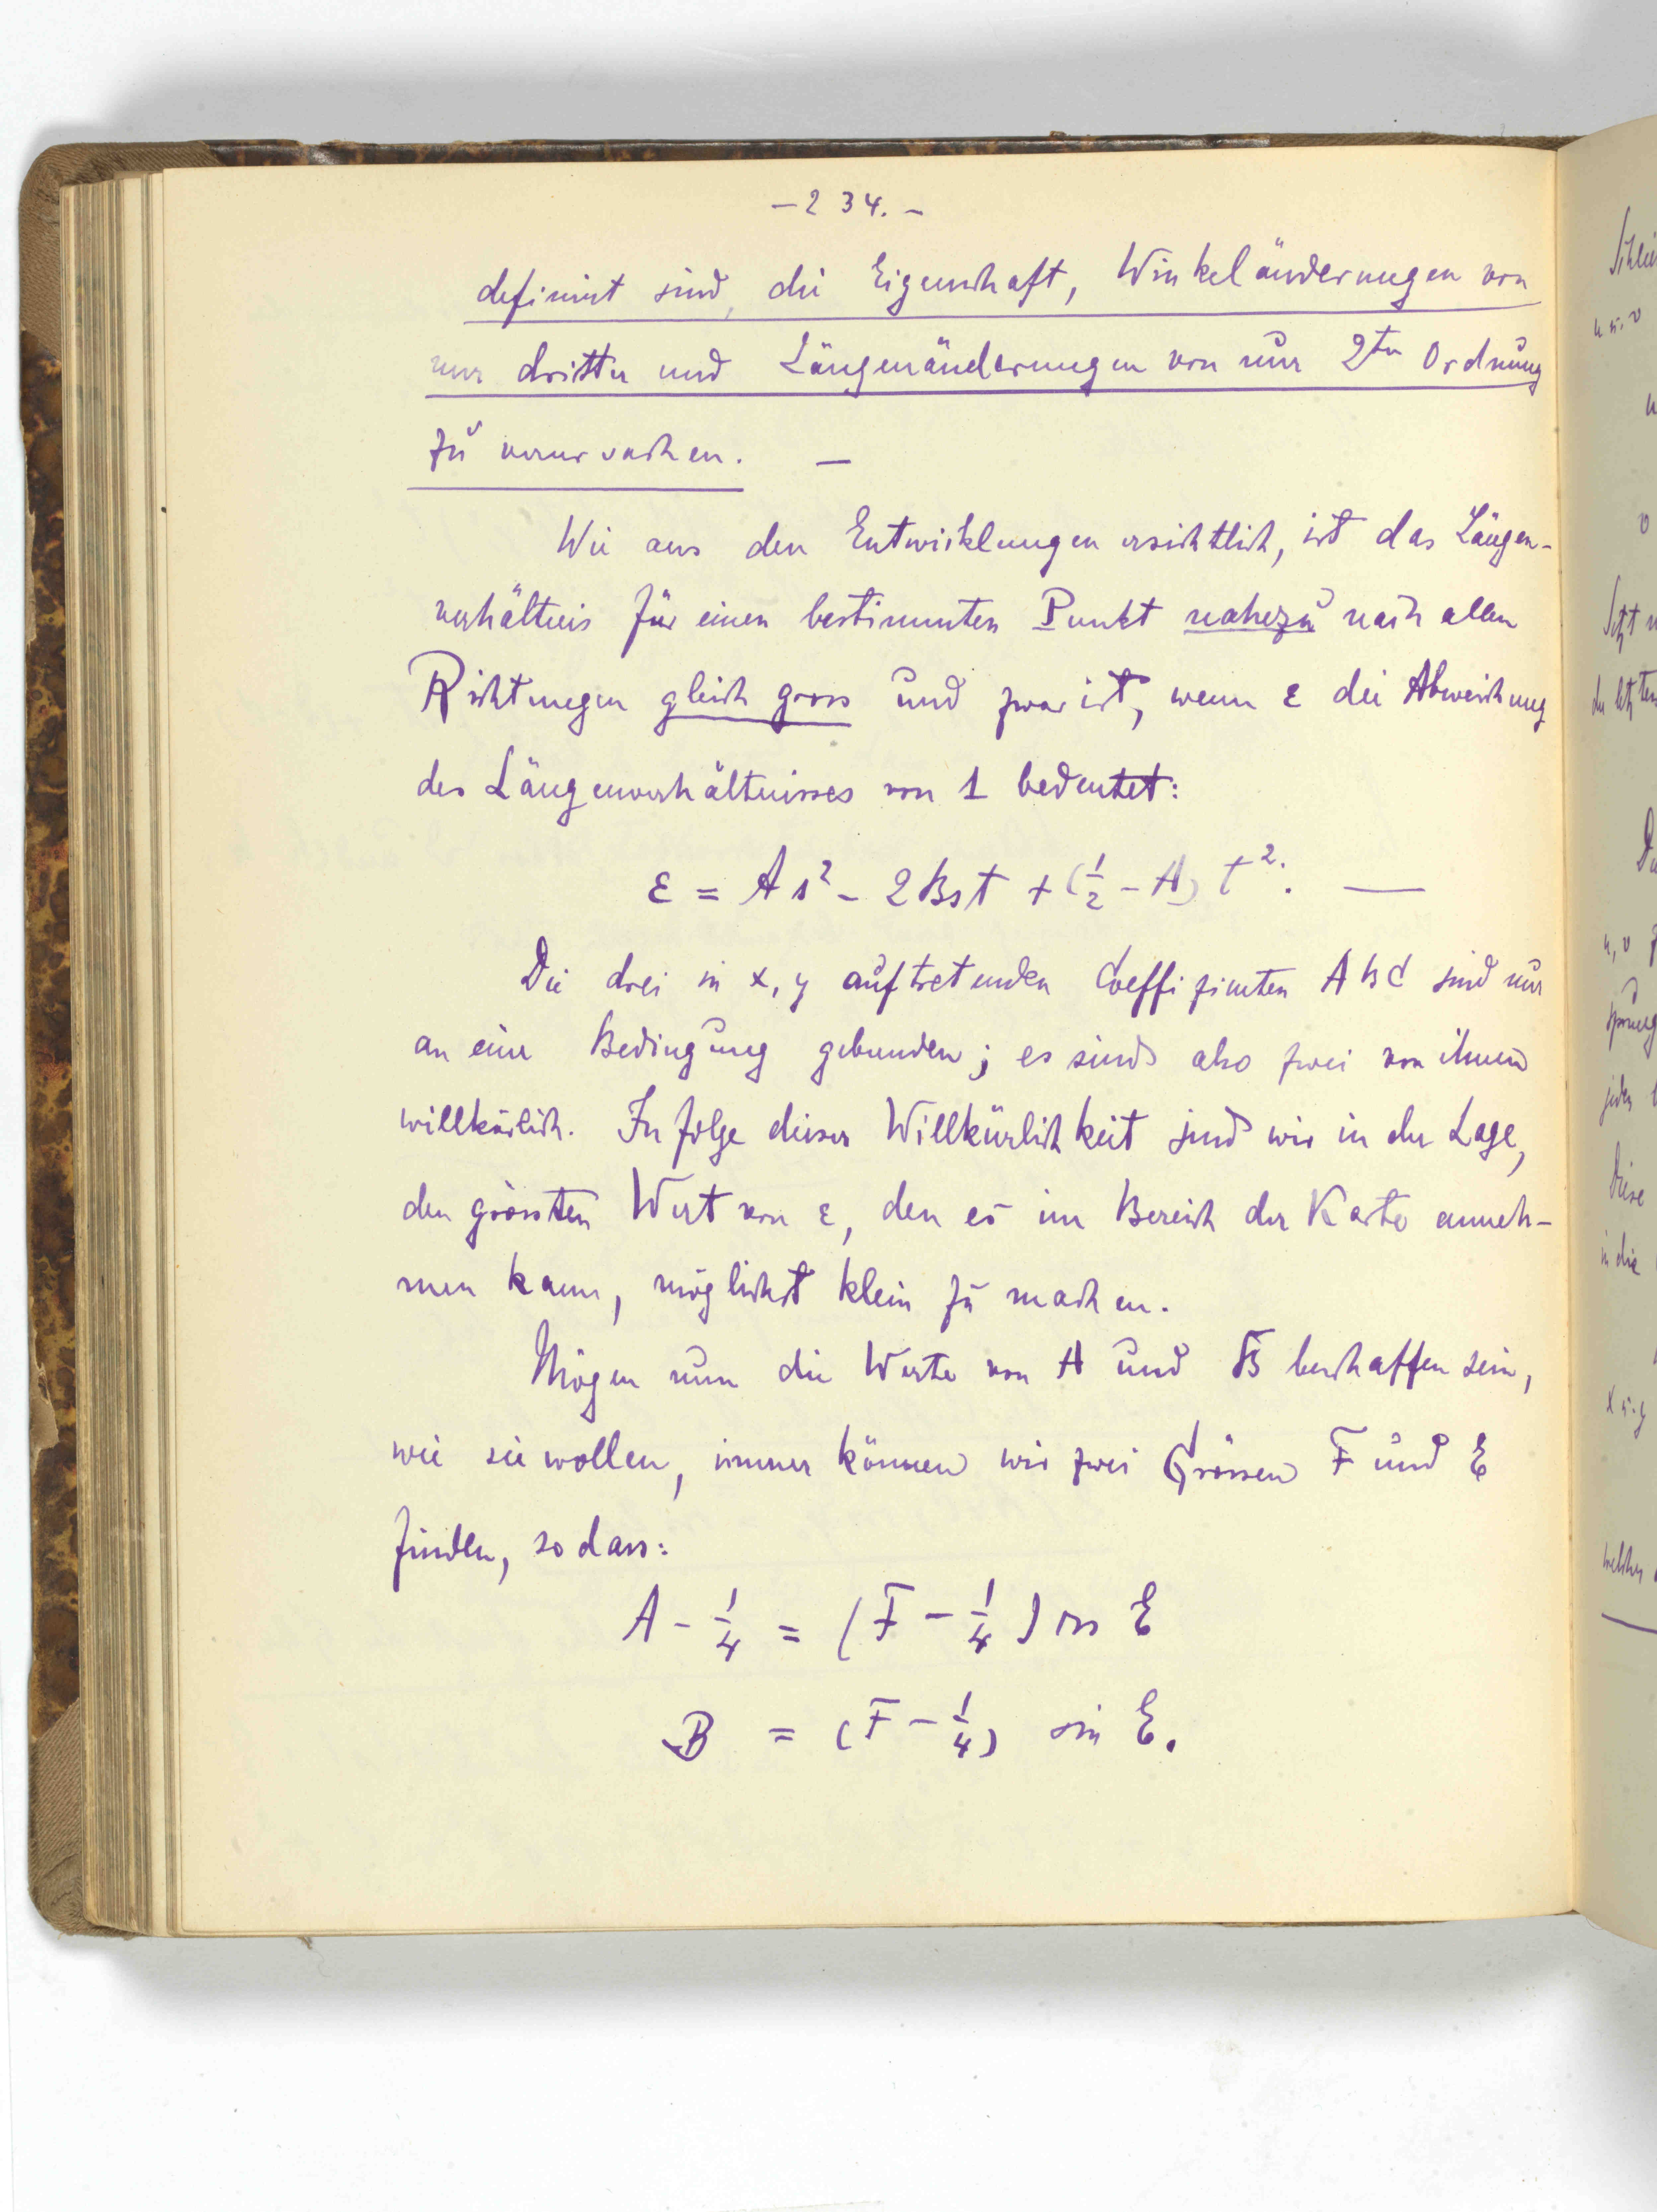 - 234. -
definirt sind, die Eigenschaft, Winkeländerungen von
nur dritter und Längenänderungen von nur 2ter Ordnung
zu verursachen. —
Wie aus den Entwicklungen ersichtlich, ist das Längen-
verhältnis für einen bestimmten Punkt nahezu nach allen
Richtungen gleich gross und zwar ist, wenn ε die Abweichung
des Längenverhältnisses von 1 bedeutet:
ε = As² - 2Bst + (1/2 - A) t². —
Die drei in x, y auftretenden Coeffizienten A B C sind nur
an eine Bedingung gebunden; es sind also zwei von ihnen
willkürlich. In folge dieser Willkürlichkeit sind wir in der Lage,
den grössten Wert von ε, den es im Bereich der Karte anneh-
men kann, möglichst klein zu machen.
Mögen nun die Werte von A und B beschaffen sein,
wie sie wollen, immer können wir zwei Grössen F und E
finden, so dass:
A - 1/4 = (F - 1/4) cos E
B = (F - 1/4) sin E.
Schlei
u.s.v
v
Setzt
der letzten
Du
u, v
sprung
jeder
Diese
in die
x u. y
welcher